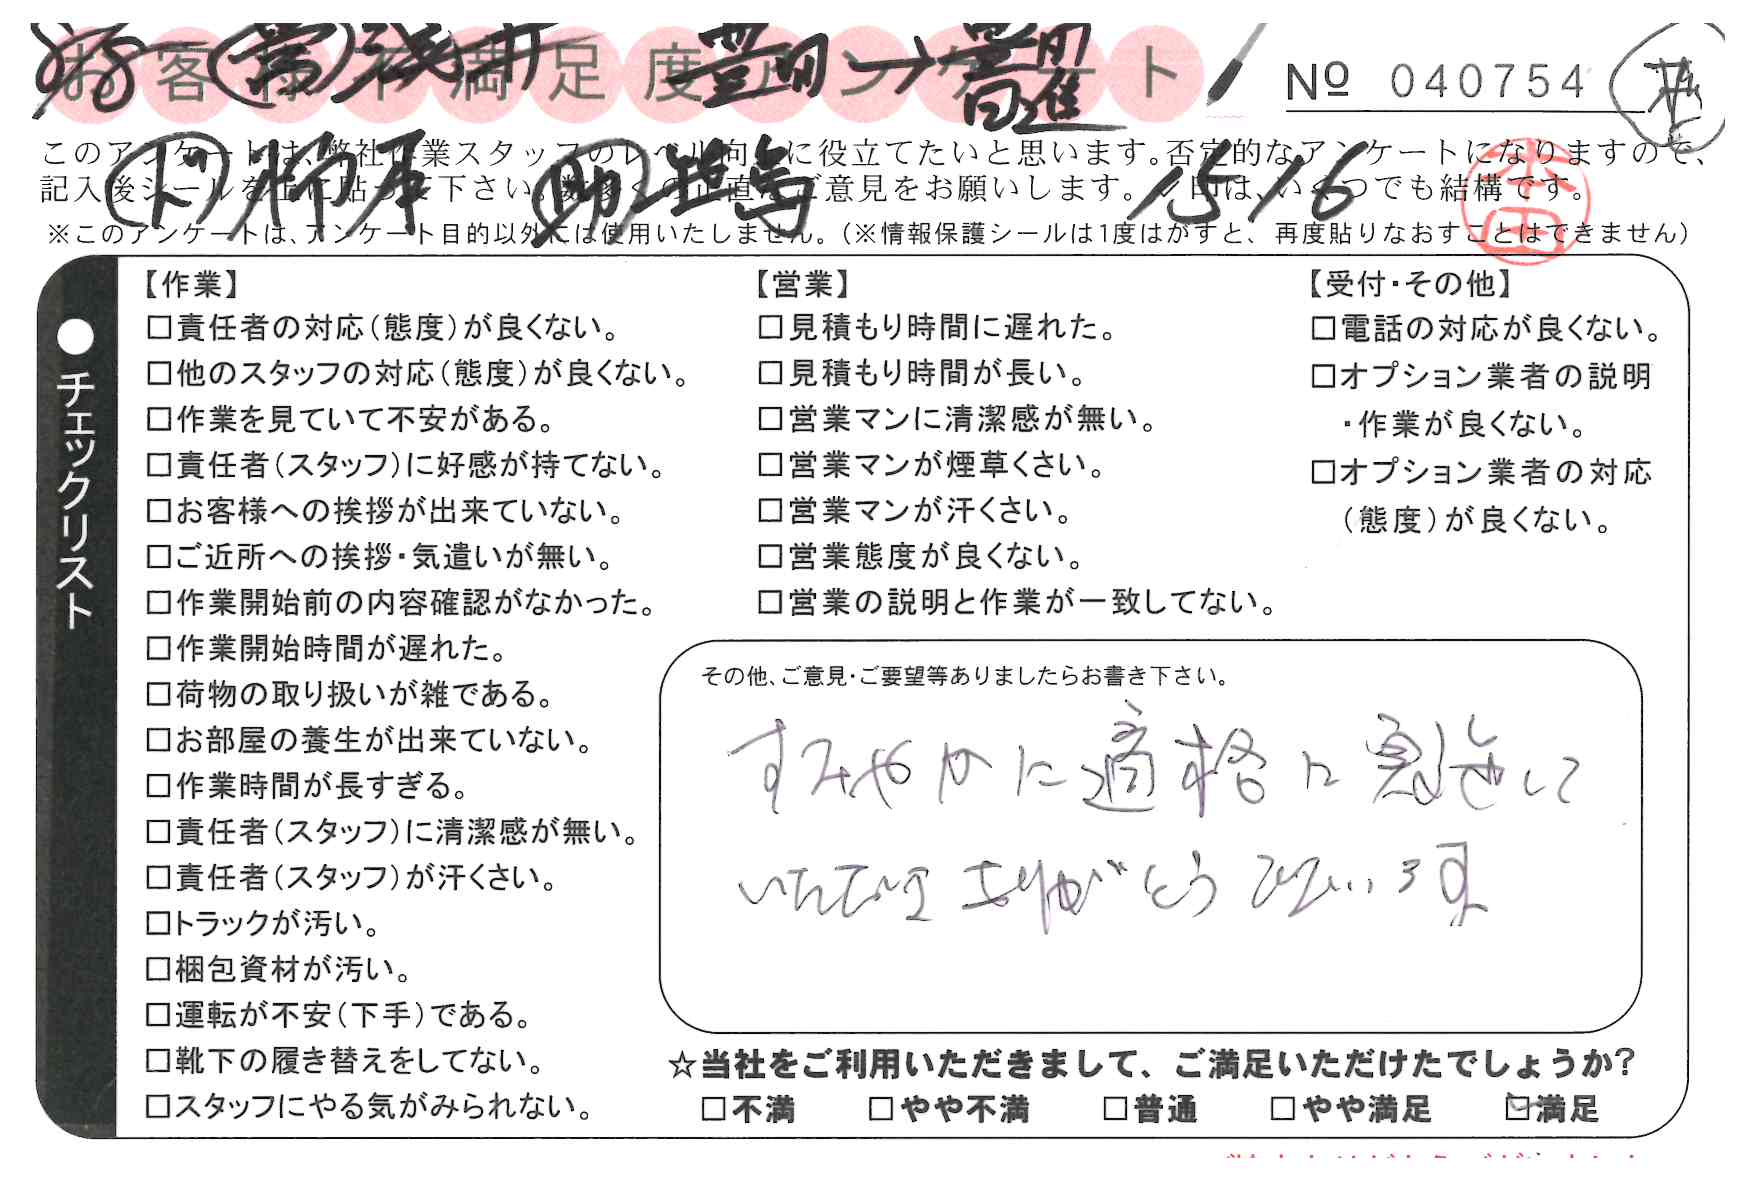 お客様不満足度アンケート
Nº 040754
浅井 豊川→豊
このアンケートは、弊社作業スタッフのレベル向上に役立てたいと思います。否定的なアンケートになりますので、
記入後シールを上に貼って下さい。数多くの正直なご意見をお願いします。✓印は、いくつでも結構です。
15/16
※このアンケートは、アンケート目的以外には使用いたしません。(※情報保護シールは1度はがすと、再度貼りなおすことはできません)
●チェックリスト
【作業】
□責任者の対応(態度)が良くない。
□他のスタッフの対応(態度)が良くない。
□作業を見ていて不安がある。
□責任者(スタッフ)に好感が持てない。
□お客様への挨拶が出来ていない。
□ご近所への挨拶・気遣いが無い。
□作業開始前の内容確認がなかった。
□作業開始時間が遅れた。
□荷物の取り扱いが雑である。
□お部屋の養生が出来ていない。
□作業時間が長すぎる。
□責任者(スタッフ)に清潔感が無い。
□責任者(スタッフ)が汗くさい。
□トラックが汚い。
□梱包資材が汚い。
□運転が不安(下手)である。
□靴下の履き替えをしてない。
□スタッフにやる気がみられない。
【営業】
□見積もり時間に遅れた。
□見積もり時間が長い。
□営業マンに清潔感が無い。
□営業マンが煙草くさい。
□営業マンが汗くさい。
□営業態度が良くない。
□営業の説明と作業が一致してない。
【受付・その他】
□電話の対応が良くない。
□オプション業者の説明
・作業が良くない。
□オプション業者の対応
(態度)が良くない。
その他、ご意見・ご要望等ありましたらお書き下さい。
すみやかに適格に実施して
いただいて ありがとうございます
☆当社をご利用いただきまして、ご満足いただけたでしょうか?
□不満 □やや不満 □普通 □やや満足 ☑満足